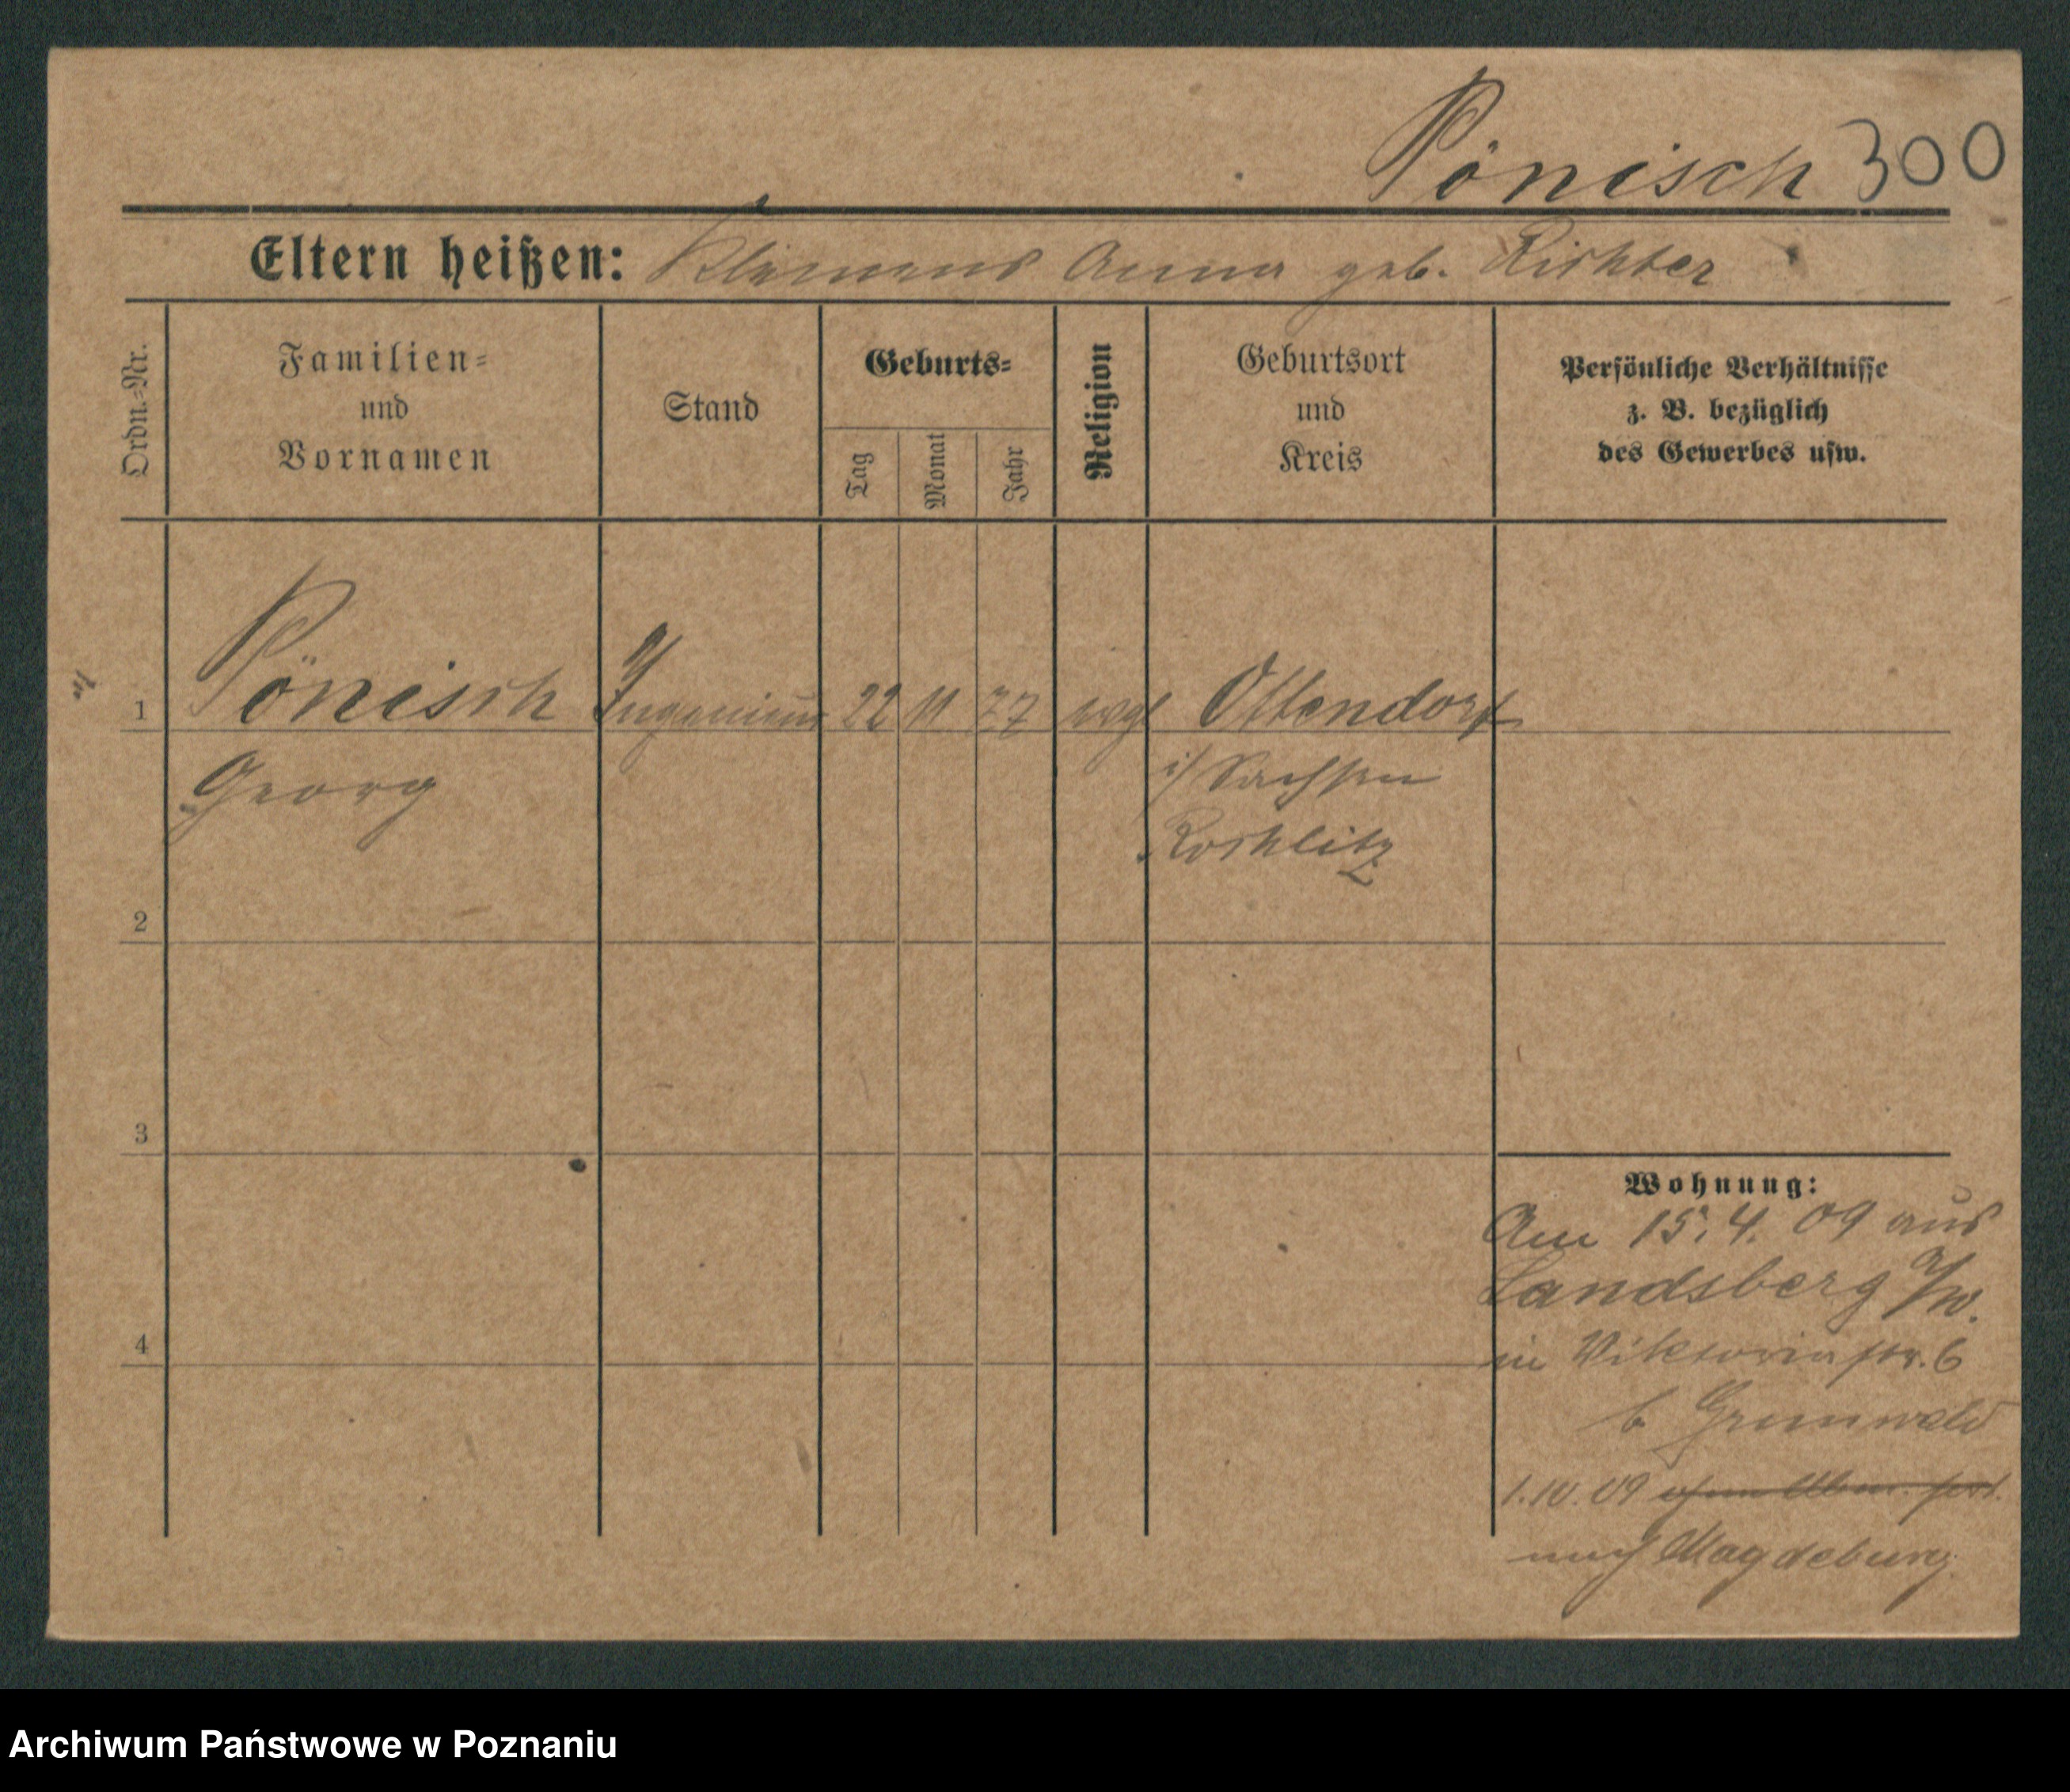 Pönisch 300
Eltern heißen: Klemens Anna geb. Richter
Ordn.-Nr.
Familien-
und
Vornamen
Stand
Geburts-
Tag
Monat
Jahr
Religion
Geburtsort
und
Kreis
Persönliche Verhältnisse
z. B. bezüglich
des Gewerbes usw.
1 Pönisch Ingenieur 22 11 77 evgl Ottendorf
Georg
i/ Sachsen
Rochlitz
2
3
4
Wohnung:
Am 15.4.09 aus
Landsberg a/w.
in Viktoriastr. 6
b Grunwald
1.10.09 ohne Abm. fort.
nach Magdeburg.
Archiwum Państwowe w Poznaniu